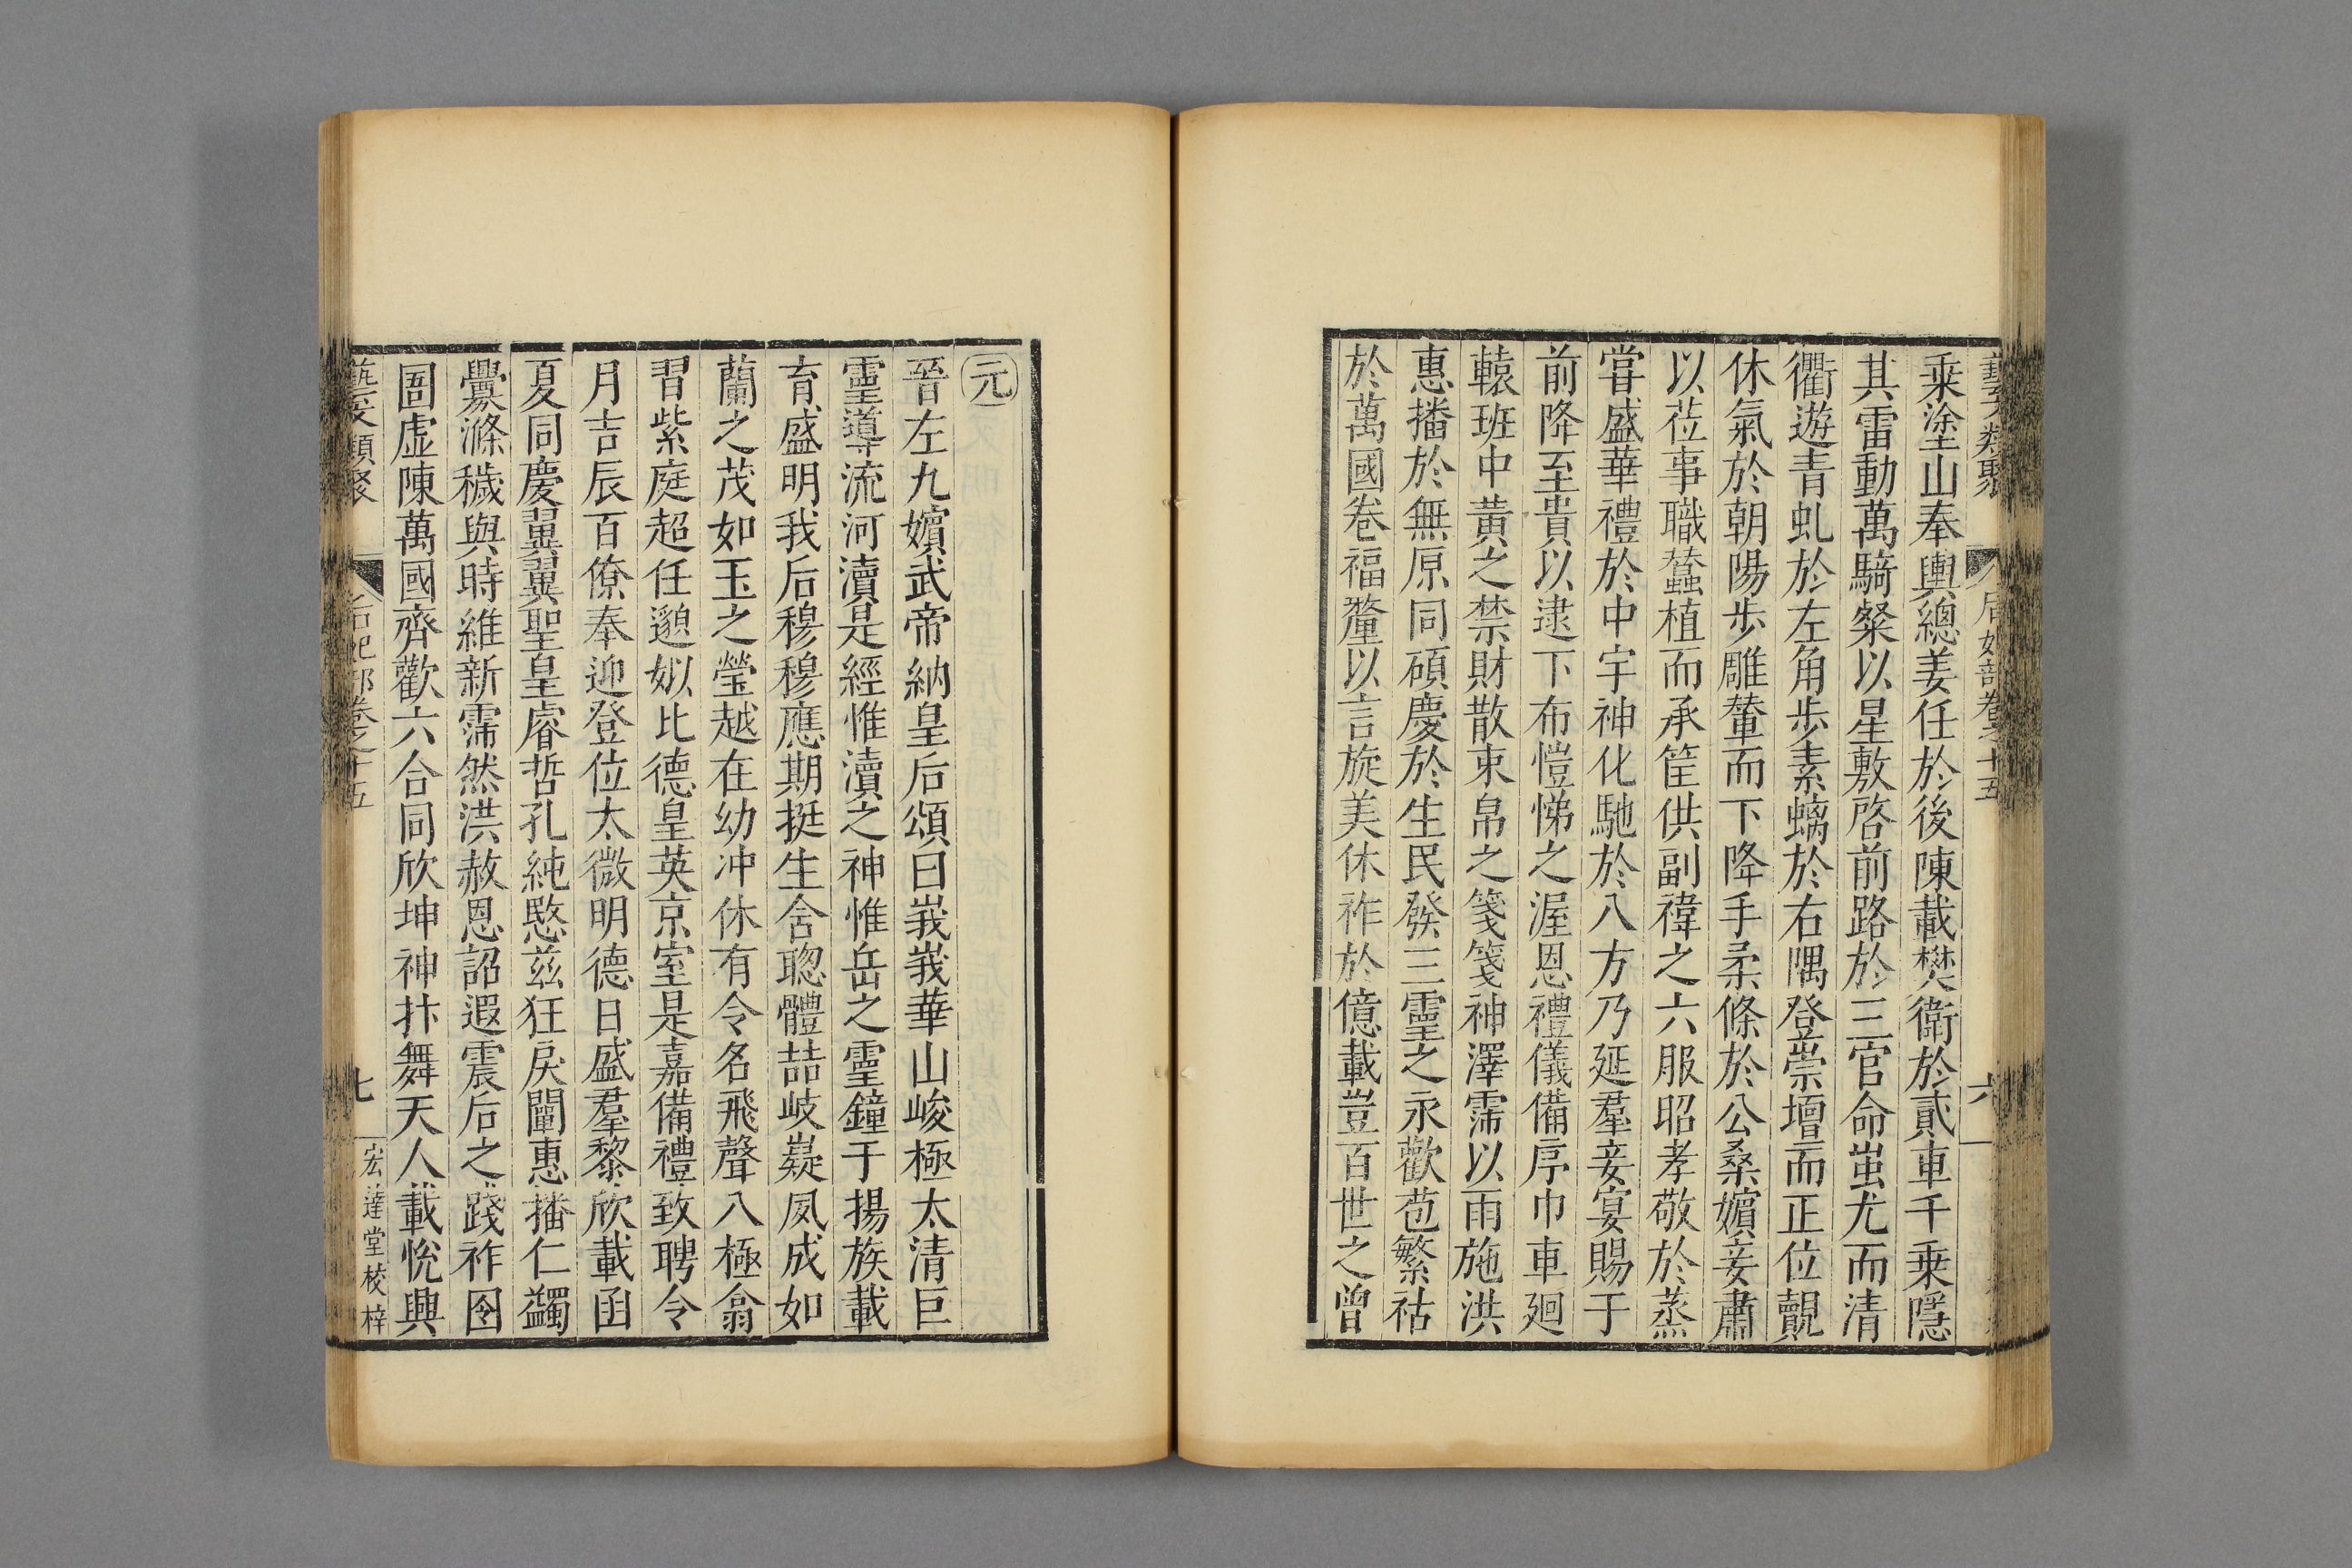 藝文類聚 后妃部卷十五 六
乘塗山奉輿總姜任於後陳載樊衛於貳車千乘隱
其雷動萬騎粲以星敷啓前路於三官命蚩尤而清
衢遊青虬於左角步素螭於右隅登崇壇而正位覿
休氣於朝陽步雕輦而下降手柔條於公桑嬪妾肅
以莅事職蠶植而承筐供副褘之六服昭孝敬於蒸
嘗盛華禮於中宇神化馳於八方乃延羣妾宴賜于
前降至貴以逮下布愷悌之渥恩禮儀備序巾車廻
轅班中黄之禁財散束帛之箋箋神澤霈以雨施洪
惠播於無原同碩慶於生民發三靈之永歡苞繁祜
於萬國卷福釐以言旋美休祚於億載豈百世之曾
元
晉左九嬪武帝納皇后頌曰峩峩華山峻極太清巨
靈導流河瀆是經惟瀆之神惟岳之靈鐘于揚族載
育盛明我后穆穆應期挺生含聰體喆岐嶷夙成如
蘭之茂如玉之瑩越在幼冲休有令名飛聲八極翕
習紫庭超任邈姒比德皇英京室是嘉備禮致聘令
月吉辰百僚奉迎登位太微明德日盛羣黎欣載函
夏同慶翼翼聖皇睿哲孔純愍兹狂戾闡惠播仁蠲
釁滌穢與時維新霈然洪赦恩詔遐震后之踐祚囹
圄虛陳萬國齊歡六合同欣坤神抃舞天人載悅興
藝文類聚 后妃部卷之十五 七 宏達堂校梓